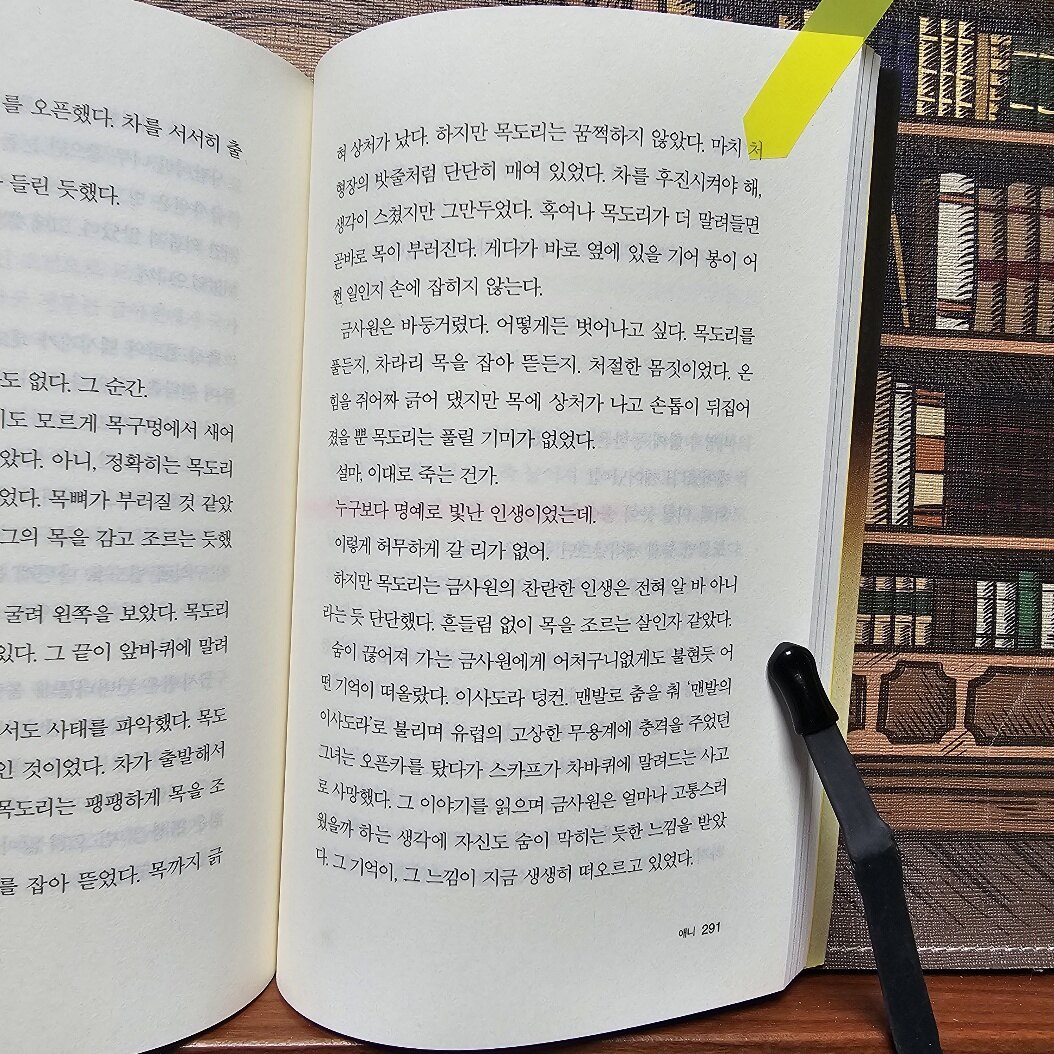 를 오픈했다. 차를 서서히 출
들린 듯했다.
도 없다. 그 순간.
도 모르게 목구멍에서 새어
았다. 아니, 정확히는 목도리
었다. 목뼈가 부러질 것 같았
그의 목을 감고 조르는 듯했
굴려 왼쪽을 보았다. 목도리
있다. 그 끝이 앞바퀴에 말려
서도 사태를 파악했다. 목도
인 것이었다. 차가 출발해서
목도리는 팽팽하게 목을 조
를 잡아 뜯었다. 목까지 긁
혀 상처가 났다. 하지만 목도리는 꿈쩍하지 않았다. 마치 처
형장의 밧줄처럼 단단히 매여 있었다. 차를 후진시켜야 해,
생각이 스쳤지만 그만두었다. 혹여나 목도리가 더 말려들면
곧바로 목이 부러진다. 게다가 바로 옆에 있을 기어 봉이 어
쩐 일인지 손에 잡히지 않는다.
금사원은 바둥거렸다. 어떻게든 벗어나고 싶다. 목도리를
풀든지, 차라리 목을 잡아 뜯든지. 처절한 몸짓이었다. 온
힘을 쥐어짜 긁어 댔지만 목에 상처가 나고 손톱이 뒤집어
졌을 뿐 목도리는 풀릴 기미가 없었다.
설마, 이대로 죽는 건가.
누구보다 명예로 빛난 인생이었는데.
이렇게 허무하게 갈 리가 없어.
하지만 목도리는 금사원의 찬란한 인생은 전혀 알 바 아니
라는 듯 단단했다. 흔들림 없이 목을 조르는 살인자 같았다.
숨이 끊어져 가는 금사원에게 어처구니없게도 불현듯 어
떤 기억이 떠올랐다. 이사도라 덩컨. 맨발로 춤을 춰 '맨발의
이사도라'로 불리며 유럽의 고상한 무용계에 충격을 주었던
그녀는 오픈카를 탔다가 스카프가 차바퀴에 말려드는 사고
로 사망했다. 그 이야기를 읽으며 금사원은 얼마나 고통스러
웠을까 하는 생각에 자신도 숨이 막히는 듯한 느낌을 받았
다. 그 기억이, 그 느낌이 지금 생생히 떠오르고 있었다.
애니 291